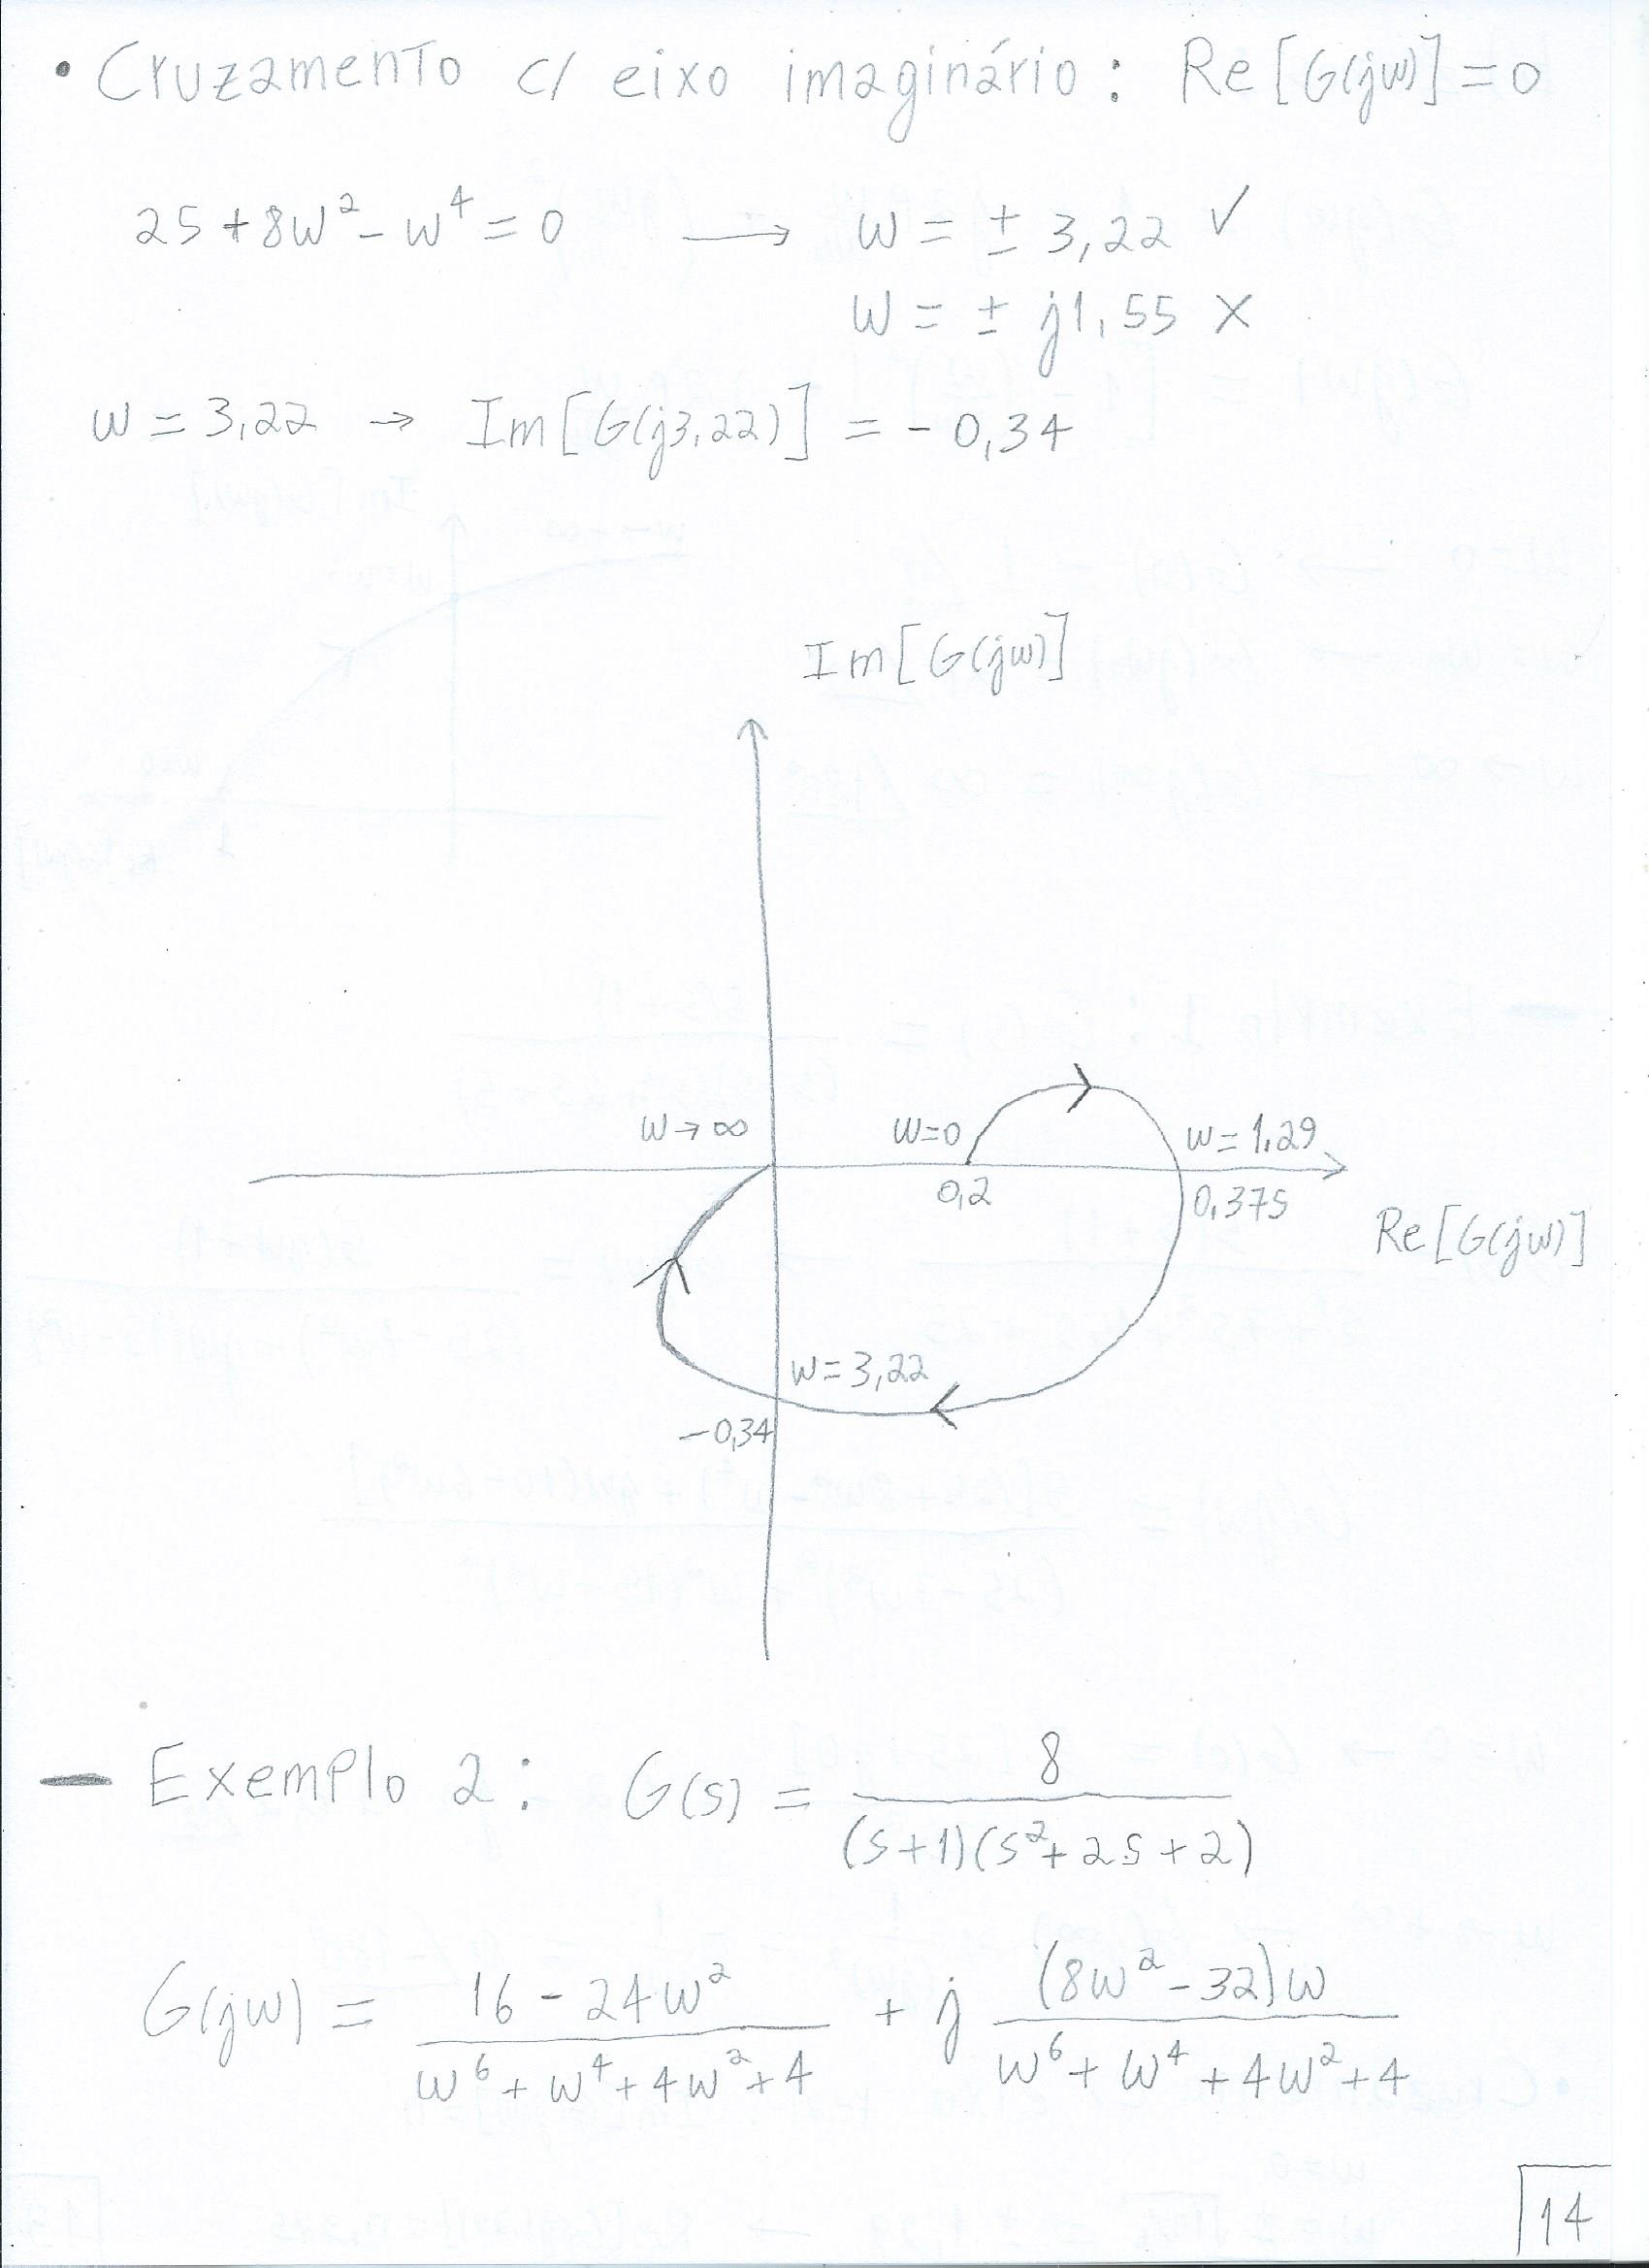 • Cruzamento c/ eixo imaginário : Re[G(jw)] = 0
25 + 8w² - w⁴ = 0 → w = ± 3,22 ✓
w = ± j1,55 X
w = 3,22 → Im[G(j3,22)] = - 0,34
Im[G(jw)]
w→∞ w=0 w=1,29
0,2 0,375
Re[G(jw)]
w=3,22
-0,34
— Exemplo 2 : G(s) = 8 / (s+1)(s²+2s+2)
G(jw) = 16 - 24w² / w⁶ + w⁴ + 4w² + 4 + j (8w² - 32)w / w⁶ + w⁴ + 4w² + 4
14